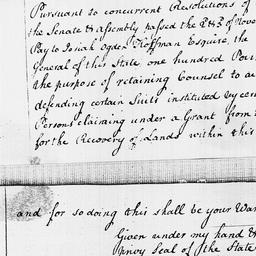 Pursuant to concurrent Resolutions of
the Senate & Assembly passed the
Pay to Josiah Ogden Hoffman Esquire the
General of this State one hundred
the purpose of retaining Counsel to
defending certain Suits instituted by
Persons claiming under a Grant from
for the Recovery of Lands within this
and for so doing this shall be your
Given under my hand &
privy Seal of the State